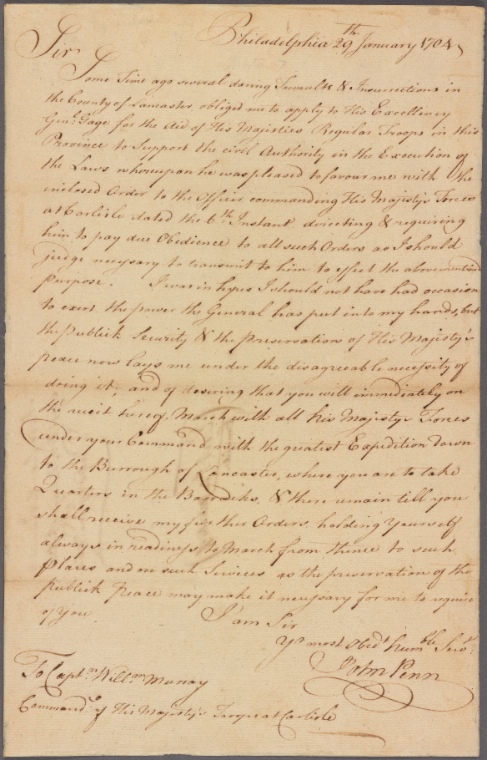 Philadelphia 29th January 1764
Sir
Some time ago several daring Tumults & Insurrections in
the County of Lancaster obliged me to apply to His Excellency
Genl Gage for the Aid of His Majesties Regular Troops in this
Province to Support the civil Authority in the Execution of
the Laws whereupon he was pleased to favour me with the
inclosed Order to the Officer commanding His Majesty's Forces
at Carlisle dated the 6th Instant directing & requiring
him to pay due Obedience to all such Orders as I should
judge necessary to transmit to him to effect the abovementioned
purpose. I was in hopes I should not have had occasion
to exert the power the General has put into my hands, but
the Publick Security & the preservation of His Majesty's
peace now lays me under the disagreeable necessity of
doing it, and of desiring that you will immediately on
the receit hereof March with all his Majesty's Forces
under your Command with the greatest Expedition down
to the Burrough of Lancaster, where you are to take
Quarters in the Barracks, & there remain till you
shall receive my further Orders, holding yourself
always in readiness to March from thence to such
Places and on such Services as the preservation of the
publick Peace may make it necessary for me to require
of you.
I am Sir
Yr most Obedt humble Servt
John Penn
To Captn Willm Murray
Commandg of His Majesty's Troops at Carlisle